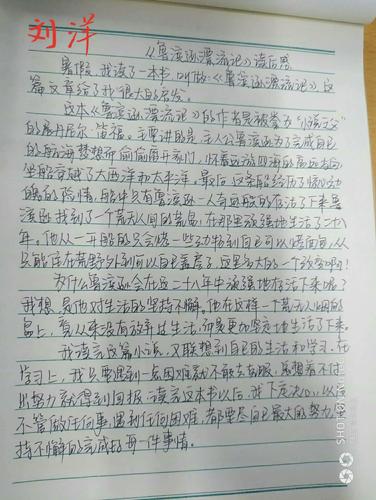 刘洋
《鲁滨逊漂流记》读后感
暑假,我读了一本书,叫做《鲁滨逊漂流记》这
篇文章给了我很大的启发。
这本《鲁滨逊漂流记》的作者是被拳为"小说之父"
的展丹尼尔·笛福。主要讲的是:主人公鲁滨逊为了完成自己
的航海梦想而偷偷离开家门,怀着远游四海的高远志向
坐船穿越了大西洋和太平洋。最后,这条船经历了惊心动
魄的险情,船中只有鲁滨逊一人奇迹般的存活了下来鲁
滨逊找到了一个荒无人间的荒岛,在那里顽强地生活了二十八
年。他从一开始的只会烤一些动物到自己可以烤面包,从
只能住在荒野外到可以自己盖房子,这是多大的一个改变啊!
为什么鲁滨逊会在这二十八年中顽强地存活下来呢?
我想:是他对生活的坚持不懈。他在这样一个荒无人烟的
岛上,有从来没有放弃过生活,而是更加坚定地生活了下来。
我读完这篇小说,又联想到自己的生活和学习。在
学习上,我只要遇到一点困难就不敢去克服,总想着不付
出努力就得到回报。读完这本书以后,我下定决心:以后
不管做任何事,遇到任何困难,都要尽自己最大的努力,坚
持不懈的完成好每一件事情。